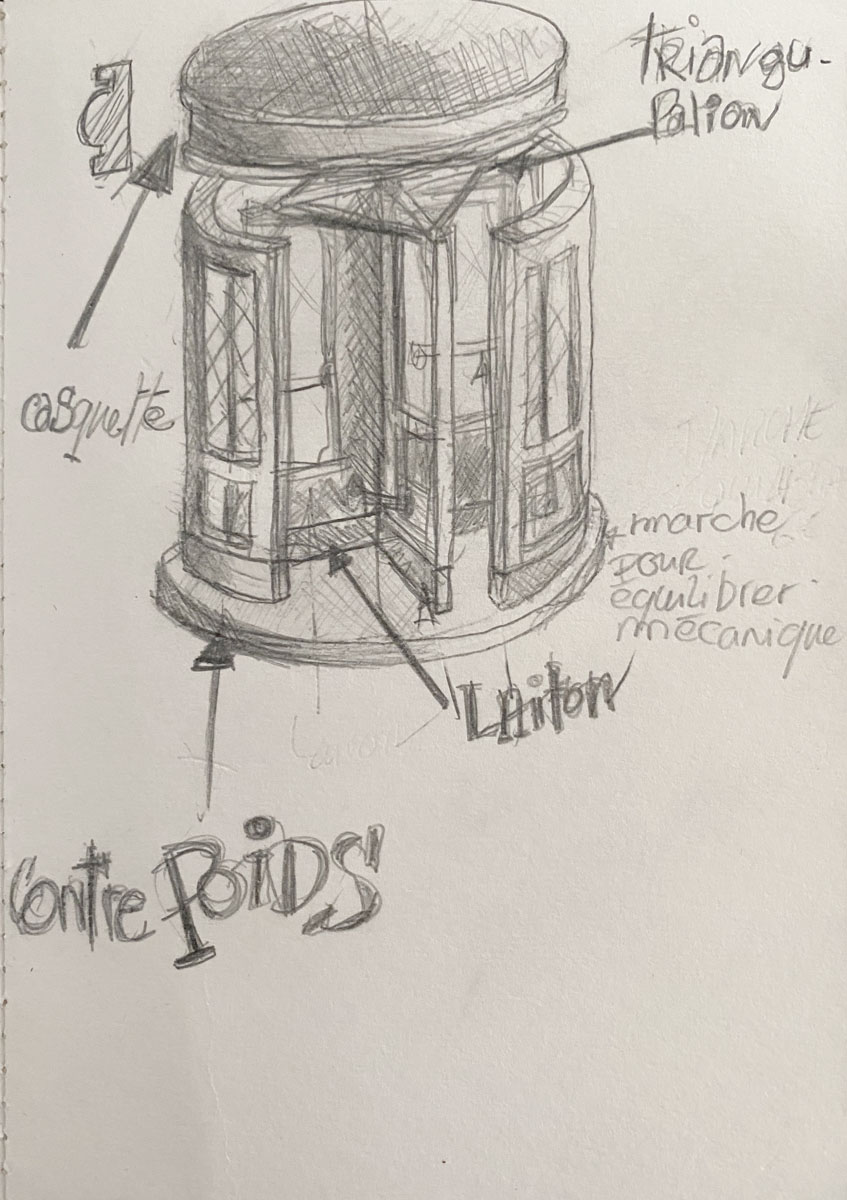 triangu-
lation
casquette
+ marche
pour
équilibrer
mécanique
Laiton
Contre Poids